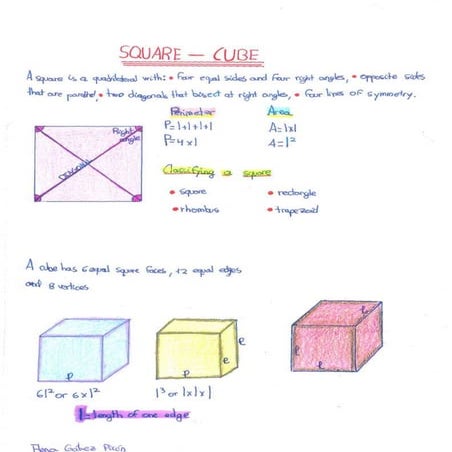 SQUARE — CUBE
A square is a quadrilateral with: • four equal sides and four right angles, • opposite sides
that are parallel, • two diagonals that bisect at right angles, • four lines of symmetry.
Perimeter
P=l+l+l+l
P=4xl
Area
A=lxl
A=l²
Right angle
Diagonal
Classifying a square
• square
• rectangle
• rhombus
• trapezoid
A cube has 6 equal square faces, 12 equal edges
and 8 vertices
l
l
l
l
l
l
l
6l² or 6xl²
l³ or lxlxl
l=length of one edge
Gálvez